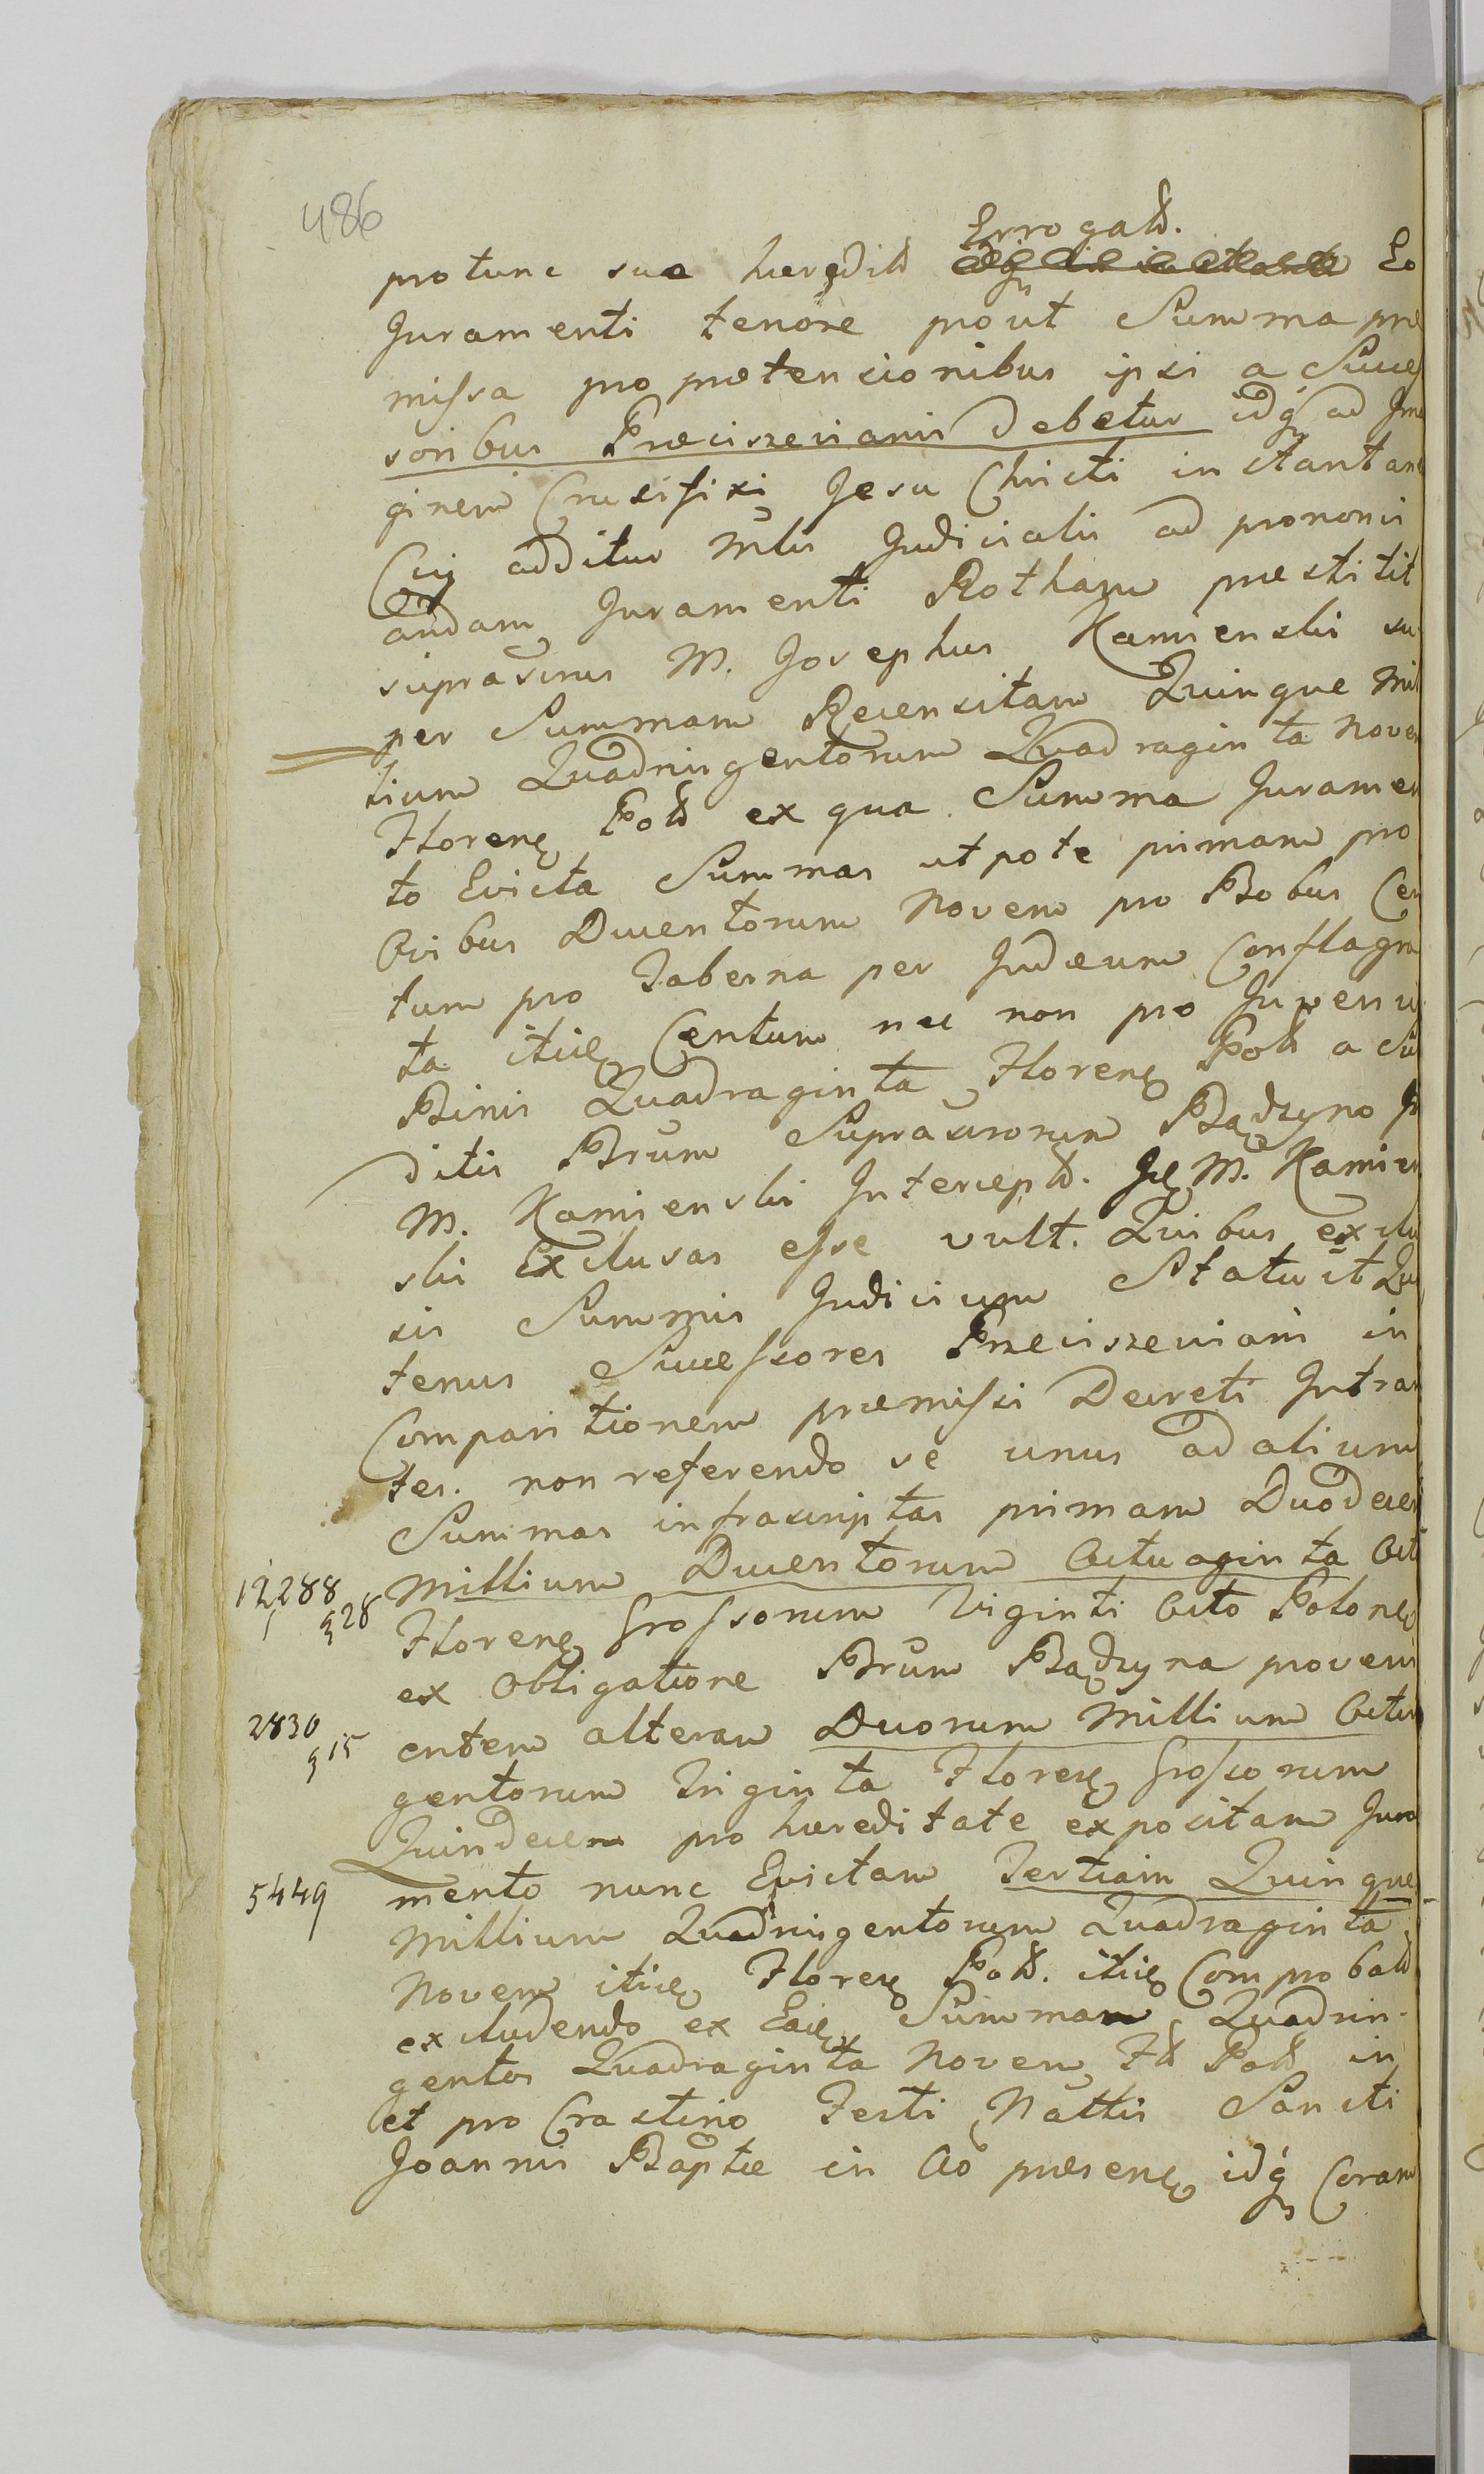 486
Errogatt.
protunc sua hæreditt Eo
Juramenti tenore prout Summa præ
missa pro prætensionibus ipsi a Succes
soribus Przeciszevianis Debetur idq ad Ima
ginem Crusifixi Jesu Christi instantane
Cuj additur Mlis Judicialis ad pronunci
andam Juramenti Rotham præstitit
suprascrius M. Josephus Kamienski su
per Summam Recensitam Quinque Mil
lium Quadringentorum Quadraginta Novem
Floren Poll ex qua Summa Juramen
to Evicta Summas utpote primam pro
Ovibus Ducentorum Novem pro Bobus Cen
tum pro Taberna per Judæum Conflagra
ta itid Centum nec non pro Juvenci
Binis Quadraginta Floren Poll a Sub
ditis Brum Suprascrorum Bądzyno p
M. Kamienski Intercept. Id M. Kamien
ski Exclusas esse vult. Quibus exclu
sis Summis Judicium Statuit Qua
tenus Successores Przeciszeviani in
Comparitionem præmissi Decreti Intran
tes. non referendo se unus ad alium
Summas infrascriptas primam Duodecem
12,288 g 28
Millium Ducentorum Octuaginta Octo
Floren Grossorum Viginti Octo Polone
ex Obligatione Brum Bądzyna proveni
2830 g 15
entem alteram Duorum Millium Octin
gentorum Triginta Floren Grossorum
Quindecem pro hæreditate expositam Jura
5449
mento nunc Evictam Tertiam Quinque
Millium Quadringentorum Quadraginta
Novem itid Floren Poll. itid Comprobatt
excludendo ex Ead Summam Quadrin-
gentos Quadraginta Novem Fl Poll in
et pro Crastino Festi Nattis Sancti
Joannis Baptæ in Ao præsen idq Coram